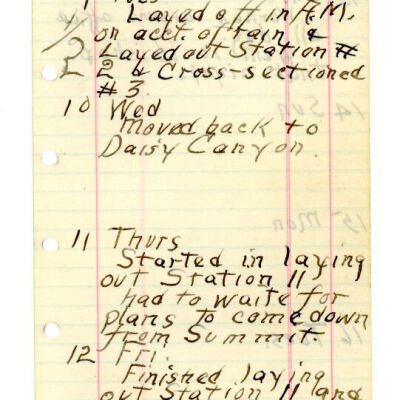 Layed off in A.M.
on acct. of rain &
Layed out Station #
2 & Cross-sectioned
#3.
10 Wed
Moved back to
Daisy Canyon.
11 Thurs
Started in laying
out Station 11
had to waite for
plans to come down
from Summit.
12 Fri.
Finished laying
out Station 11 and